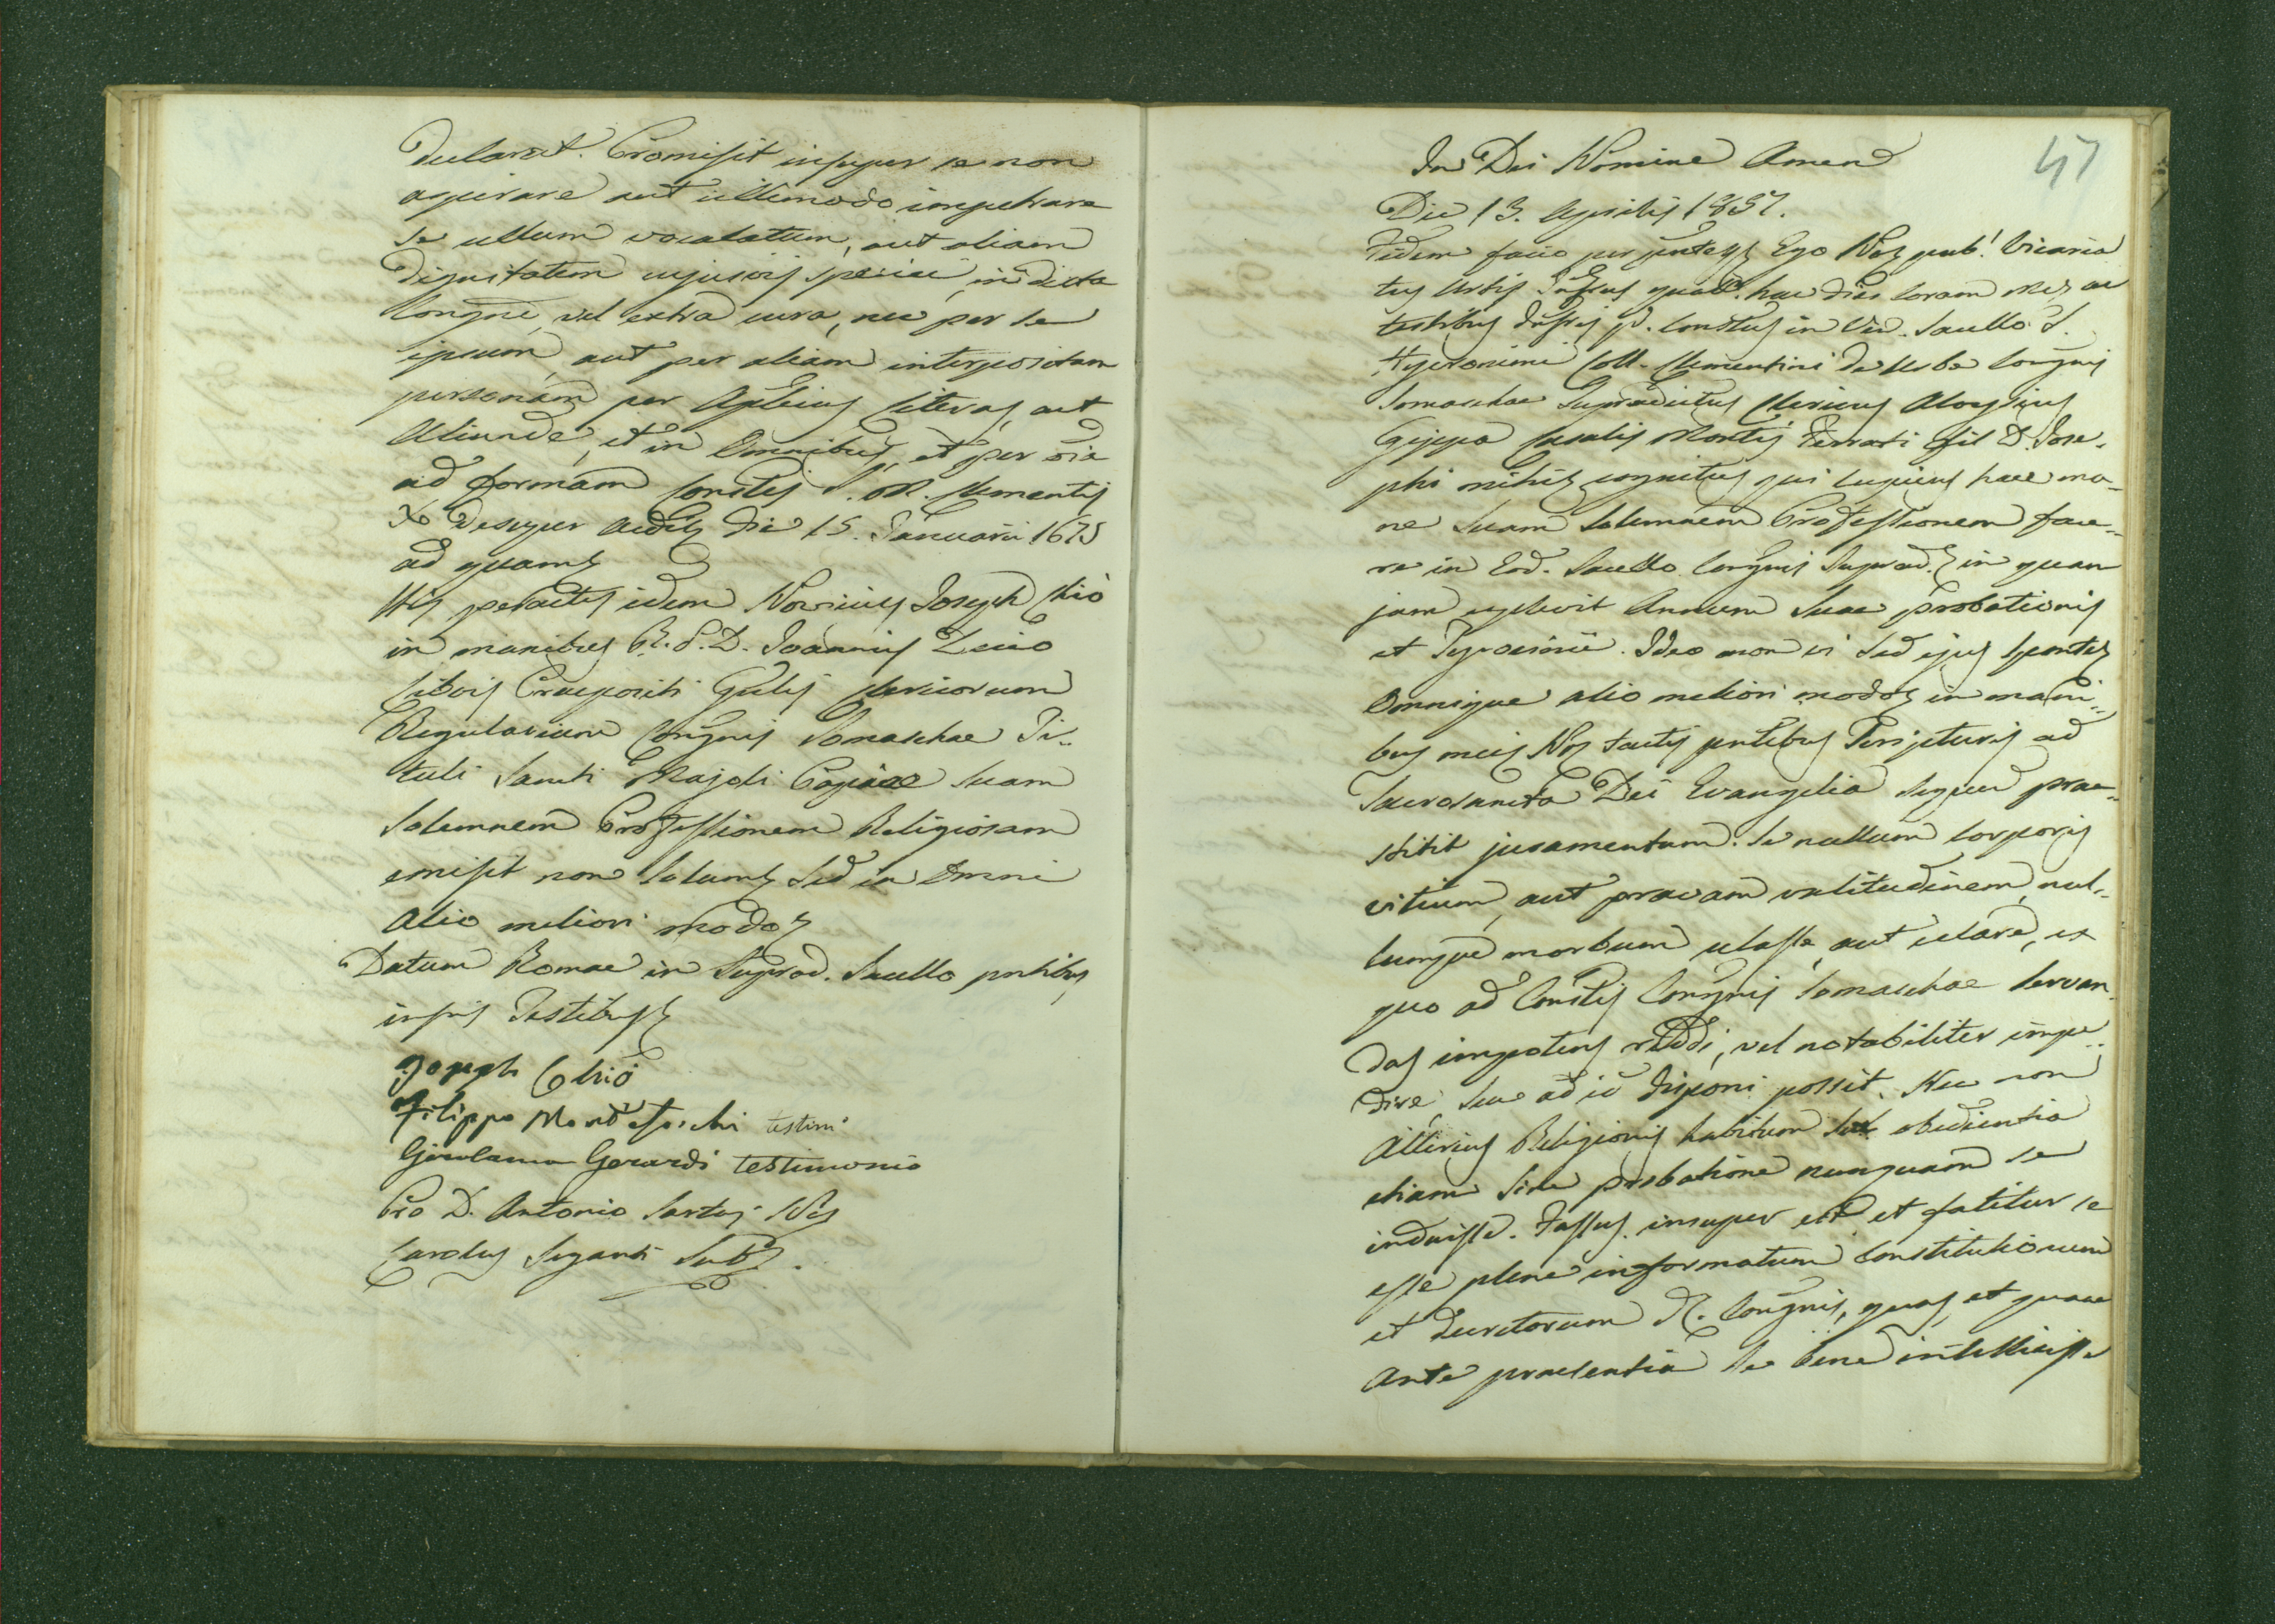 declarat. Promisit insuper se non
aspirare aut ullimodo impetrare
se ullum vocalatum, aut aliam
Dignitatem cujusvis speciei, in dicta
Congne, vel extra eura, nec per se
ipsum, aut per aliam interpositam
personam per Aplicas literas, aut
Aliunde, et in Omnibus, et per oia
ad formam Constis S. M. Clementis
X desuper die 15. Januarii 1675
ad quam
His peractis idem Novicius Joseph Chiò
in manibus R. P. D. Joannis Decio
Praepositi Gnlis Clericorum
Regularium Congnis Somaschae Ti-
tuli Sancti Majoli Papiae suam
Solemnem Professionem Religiosam
emisit non solum sed in Omni
Alio meliori modo
Datum Romae in Suprad. Sacello pntibus
infris Testibus
Joseph Chiò
Filippo testim
Girolamo Gerardi testimonio
Pro D. Antonio Sartus Not
Carolus Subs.
47
In Dei Nomine Amen
Die 13. Aprilis 1857.
Fidem facio per pntes Ego Not pub. Vicaria
tus Urbis Infrus qual. hac dies Coram Me, ac
testibus Infris p. Constus in Ven. Sacello S.
Hyeronimi Coll. Clementini de Urbe Congnis
Somaschae Supradictus Clericus Aloysius
Gippa Casalis Montis Ferrati fil D. Jose-
phi mihi cognitus qui cupiens hac ma-
ne Suam Solemnem Professionem face-
re in Eod. Sacello Congnis Suprad. in quam
jam explevit Annum Suae Probationis
et Tyrocinii. Ideo non vi sed ejus sponte
Omnique alio meliori modo in mani-
bus meis Not tactis pntibus Scripturis ad
Sacrosancta Dei Evangelia super prae-
stitit juramentum. Se nullum Corporis
vitium, aut pravam valitudinem, nul-
lumque morbum celasse, aut celare, ex
quo ad Constis Congnis Somaschae Servan
das impotens reddi, vel notabiliter impe-
dire, seu ad id disponi possit. Nec non
Alterius Religionis habitum sub obedientia
etiam sine probatione nunquam se
induisse. Fassus insuper est et fatetur se
esse plene informatum Constitutionum
et Decretorum d. Congnis, quas, et quae
Ante praesentia se bene intellixisse